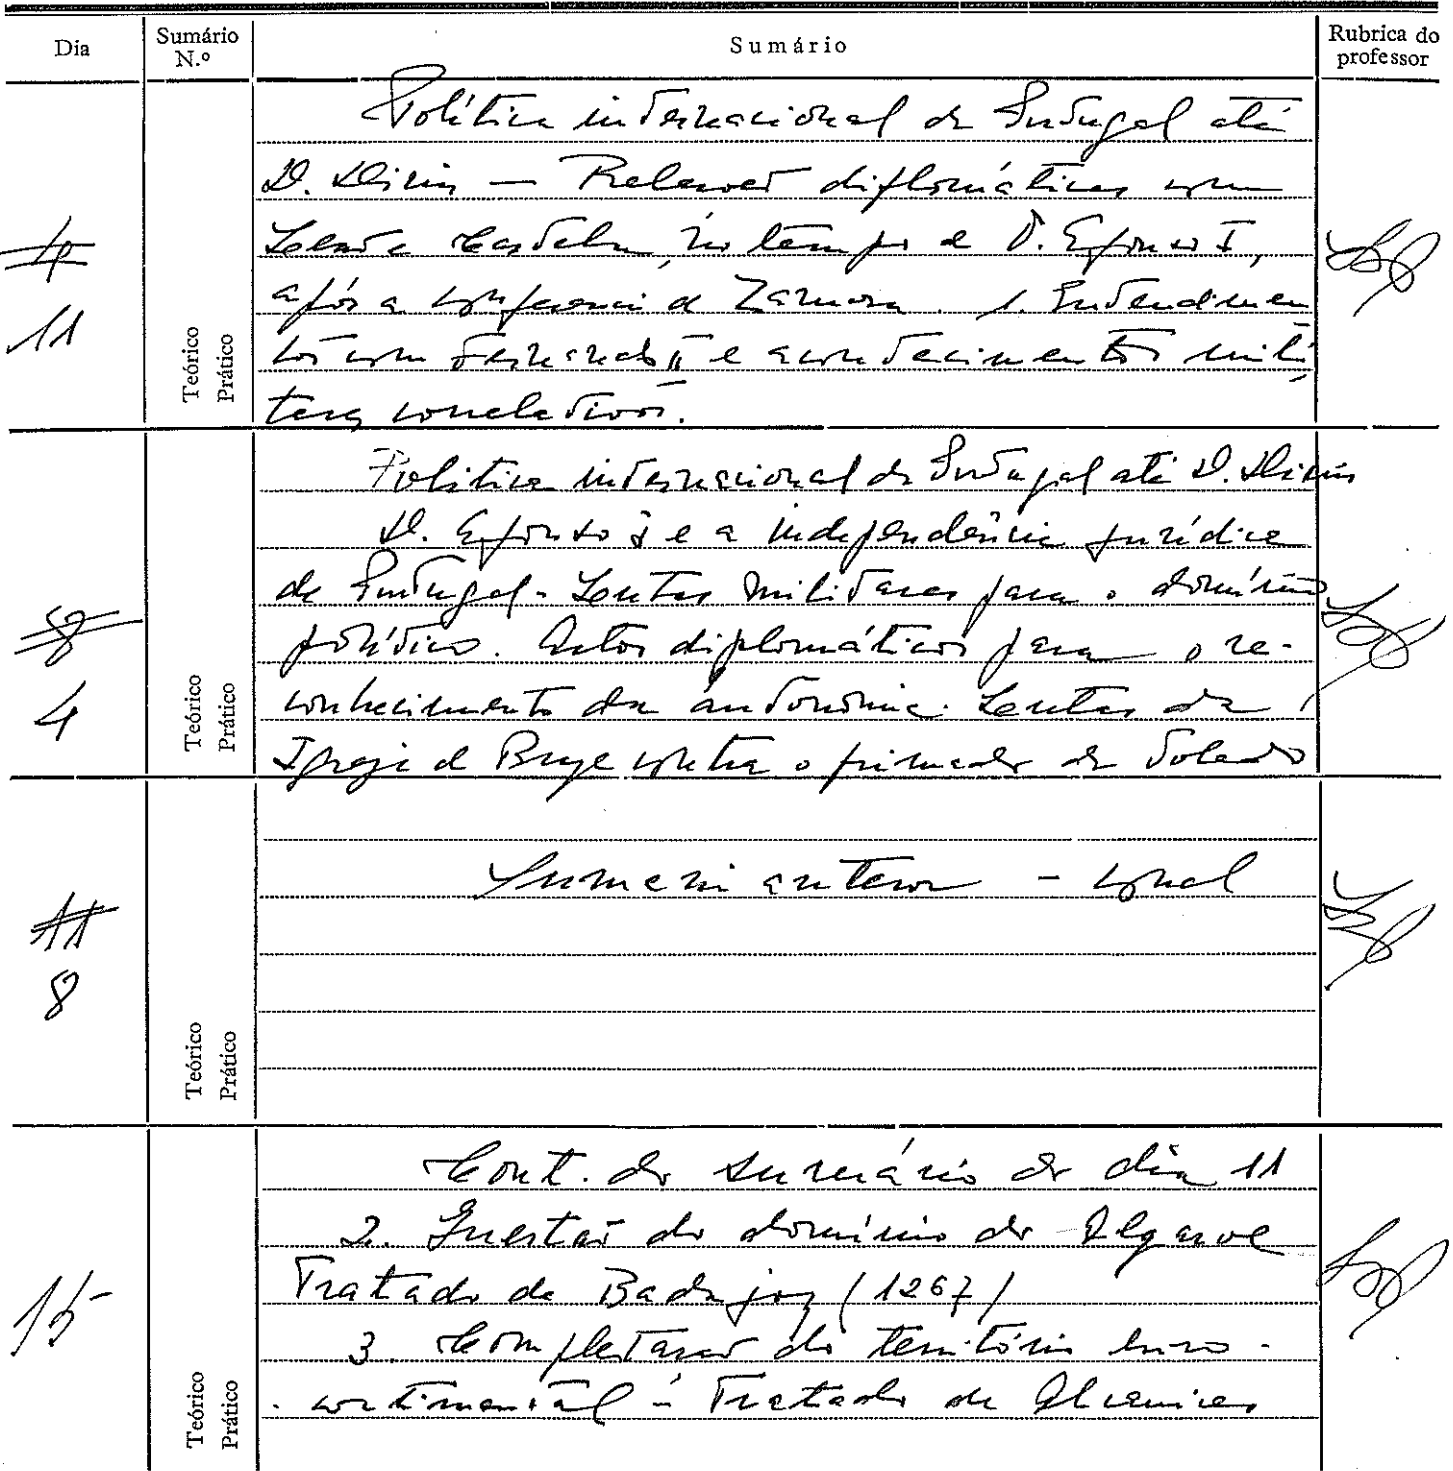 Dia
Sumário N.º
Sumário
Rubrica do professor
4
11
Teórico
Prático
Política internacional de Portugal até
D. Dinis — Relações diplomáticas com
Leão e Castela, no tempo de D. Afonso I,
após a conferência de Zamora. 1. Entendimen
tos com Fernando II e acontecimentos mili
tares correlativos.
8
4
Teórico
Prático
Política internacional de Portugal até D. Dinis
D. Afonso I e a independência jurídica
de Portugal - Lutas militares para o domínio
político. Actos diplomáticos para o re-
conhecimento da autonomia. Lutas da
Igreja de Braga contra o primado de Toledo
11
8
Teórico
Prático
Sumário anterior - igual
15
Teórico
Prático
Cont. do sumário do dia 11
2. Questão do domínio do Algarve
Tratado de Badajoz (1267)
3. Completação do território euro-
-continental - Tratado de Alcanices